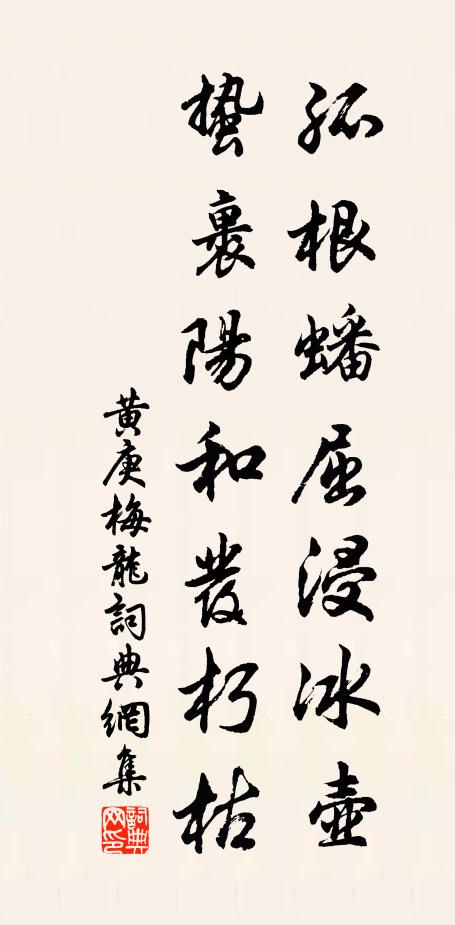 孤根蟠屈浸冰壺
蟄裏陽和發朽枯
黃庚梅龍詞典網集
詞典网印